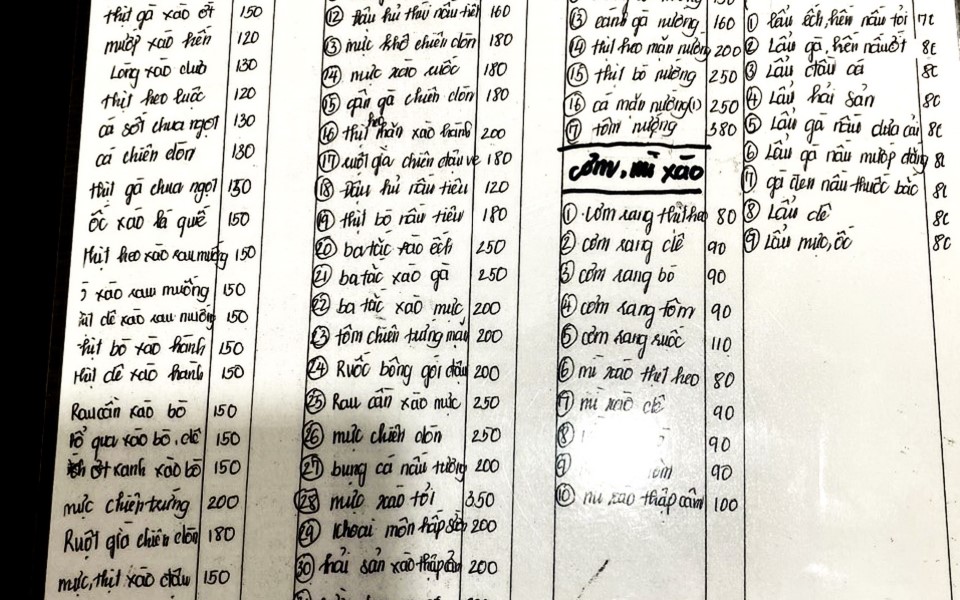 thịt gà xào ớt 150
mướp xào hến 120
Lòng xào dưa 130
thịt heo luộc 120
cá sốt chua ngọt 130
cá chiên dòn 130
thịt gà chua ngọt 150
ốc xào lá quế 150
thịt heo xào rau muống 150
xào rau muống 150
dê xào rau muống 150
thịt bò xào hành 150
thịt dê xào hành 150
Rau cần xào bò 150
qua xào bò, dê 150
ớt xanh xào bò 150
mực chiên trứng 200
Ruột già chiên dòn 180
mực, thịt xào dưa 150
⑫ Đậu hủ thúi nấu tiết 160
⑬ mực khô chiên dòn 180
⑭ mực xào ruốc 180
⑮ gân gà chiên dòn 180
⑯ thịt heo mặn xào hành 200
⑰ ruột già chiên đầu ve 180
⑱ Đậu hủ nấu tiêu 120
⑲ thịt bò nấu tiêu 180
⑳ ba tặc xào ếch 250
㉑ ba tặc xào gà 250
㉒ ba tặc xào mực 200
㉓ tôm chiên tương mặn 200
㉔ Ruốc bông gói dâu 200
㉕ Rau cần xào mực 250
㉖ mực chiên dòn 250
㉗ bụng cá nấu tương 200
㉘ mực xào tỏi 350
㉙ khoai môn hấp 200
㉚ hải sản xào thập cẩm 200
⑬ cánh gà nướng 160
⑭ thịt heo mặn nướng 200
⑮ thịt bò nướng 250
⑯ cá mặn nướng(1) 250
⑰ tôm nướng 380
cơm, mì xào
① cơm rang thịt heo 80
② cơm rang dê 90
③ cơm rang bò 90
④ cơm rang tôm 90
⑤ cơm rang ruốc 110
⑥ mì xào thịt heo 80
⑦ mì xào dê 90
⑧ 90
⑨ 90
⑩ mì xào thập cẩm 100
① lẩu ếch, hến nấu tỏi
② Lẩu gà, hến nấu ớt
③ Lẩu đầu cá
④ Lẩu hải sản
⑤ Lẩu gà nấu dưa cải
⑥ Lẩu gà nấu mướp đắng
⑦ gà đen nấu thuốc bắc
⑧ Lẩu dê
⑨ Lẩu mực, ốc